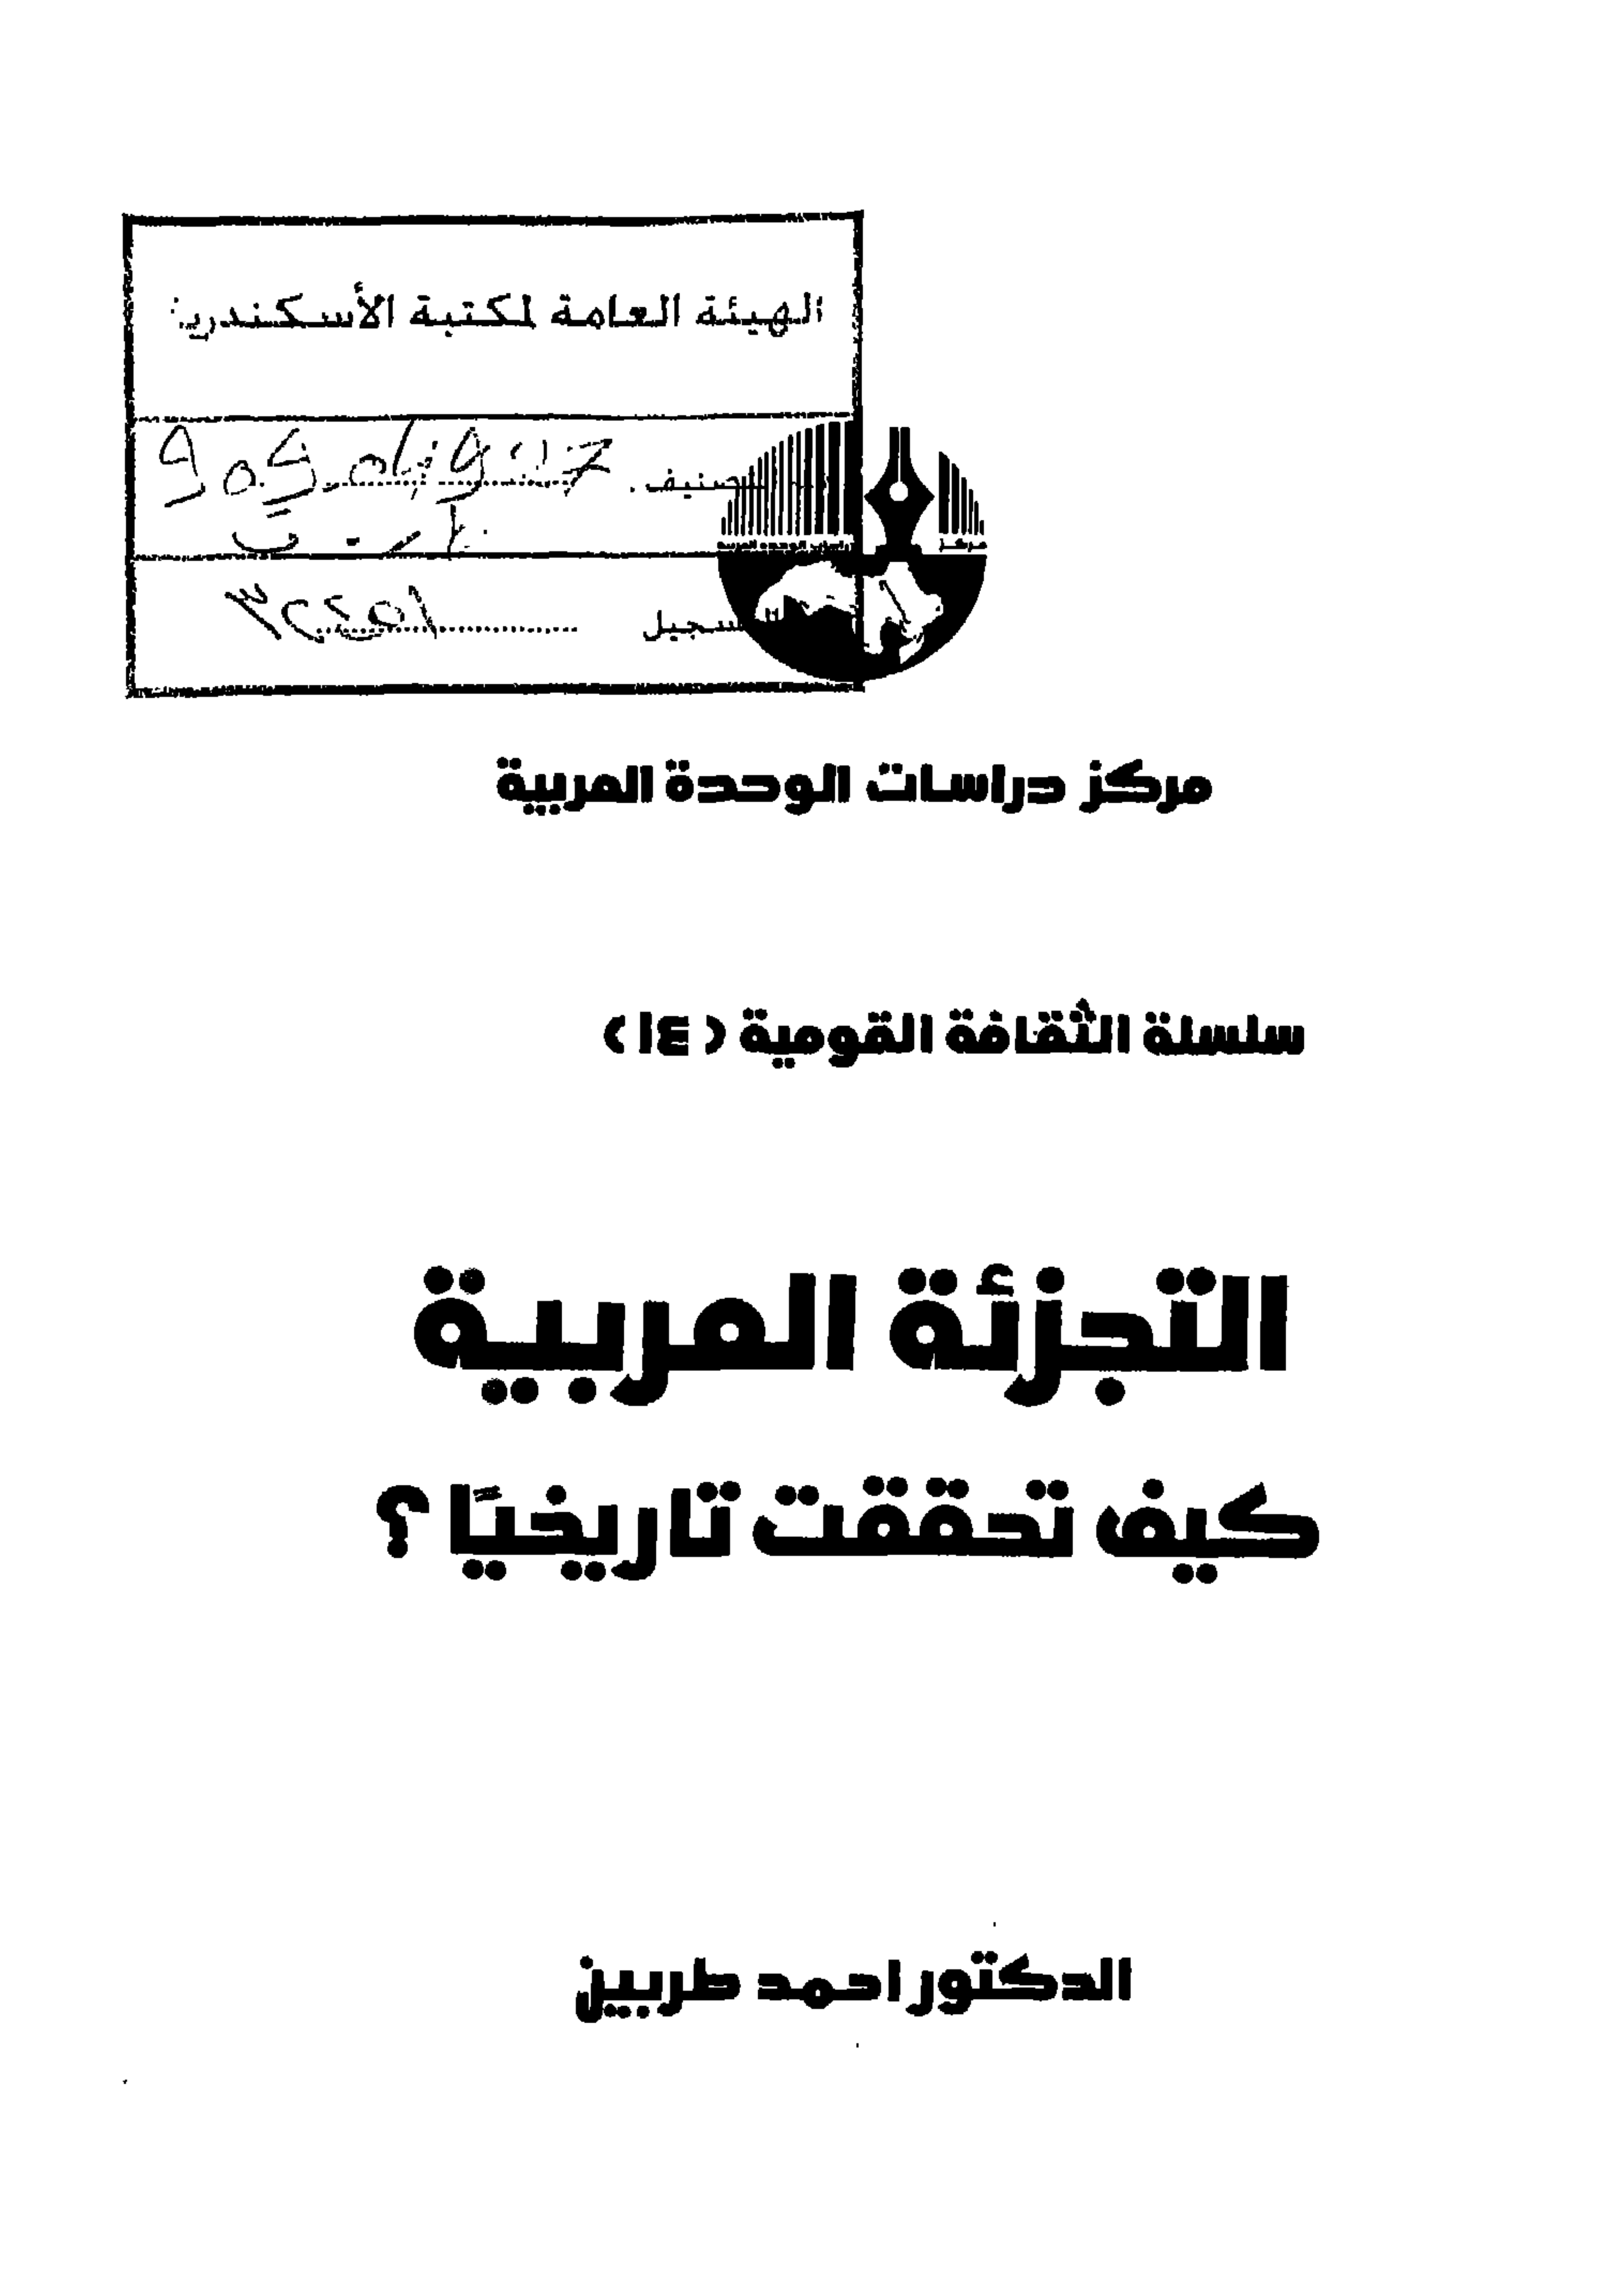 الهيئة العامة لمكتبة الأسكندرية
التسجيل
مركز دراسات الوحدة العربية
مركز دراسات الوحدة العربية
سلسلة الثقافة القومية (١٤)
التجزئة العربية
كيف تحققت تاريخيًا ؟
الدكتور احمد طربين